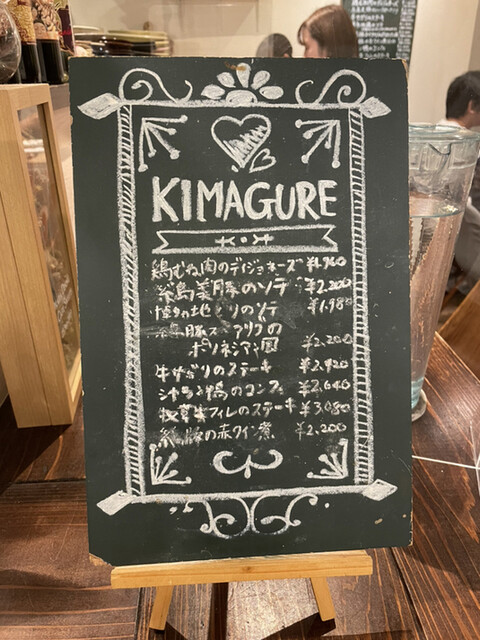 KIMAGURE
鶏むね肉のディジョネーズ ¥1,960
糸島美豚のソテー ¥2,200
博多地どりのソテー ¥1,980
豚スペアリブの
ポリネシア風 ¥2,200
牛サガリのステーキ ¥2,420
シャラン鴨のコンフィ ¥2,640
牧草牛フィレのステーキ ¥3,080
の赤ワイン煮 ¥2,200